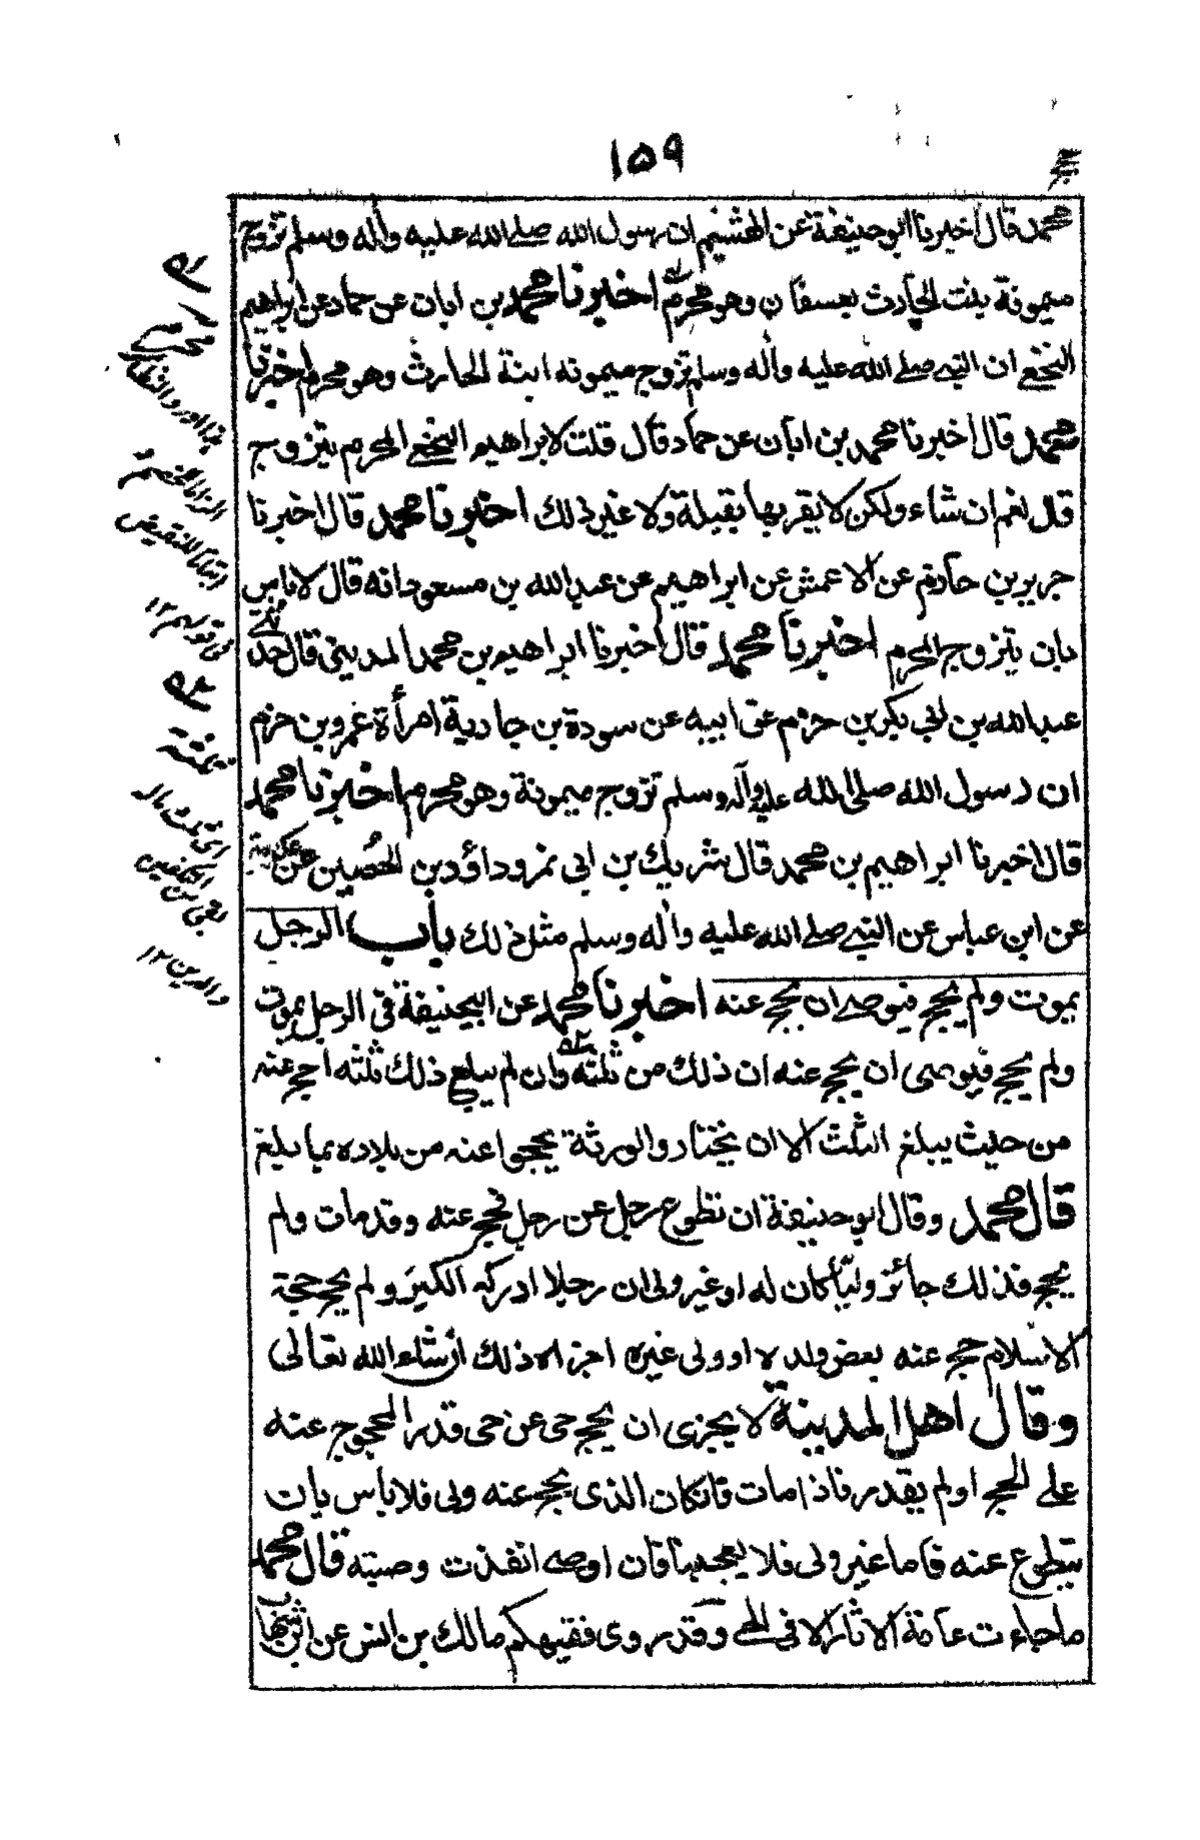 ١٥٩
حج
محمد قال اخبرنا ابو حنيفة عن الهشيم ان رسول الله صلے الله عليه واٰله وسلم تزوج
ميمونة بنت الحارث بعسفان وهو محرم اخبرنا محمد بن ابان عن حماد عن ابراهيم
النخعے ان النبے صلے الله عليه واٰله وسلم تزوج ميمونه ابنة الحارث وهو محرم اخبرنا
محمد قال اخبرنا محمد بن ابان عن حماد قال قلت لابراهيم النخعے المحرم يتزوج
قال نعم ان شاء ولكن لا يقربها بقبلة ولا غير ذلك اخبرنا محمد قال اخبرنا
جرير بن حازم عن الاعمش عن ابراهيم عن عبد الله بن مسعود انه قال لا باس
بان يتزوج المحرم اخبرنا محمد قال اخبرنا ابراهيم بن محمد المدينى قال حدثنے
عبد الله بن ابي بكر بن حزم عن ابيه عن سودة بن جارية امرأة عمرو بن حزم
ان رسول الله صلى الله عليه واٰله وسلم تزوج ميمونة وهو محرم اخبرنا محمد
قال اخبرنا ابراهيم بن محمد قال شريك بن ابي نمر وداؤد بن الحُصين عن عكرمة
عن ابن عباس عن النبے صلے الله عليه واٰله وسلم مثل ذلك باب الرجل
يموت ولم يحج فيوصے ان يحج عنه اخبرنا محمد عن ابيحنيفة في الرجل يموت
ولم يحج فيوصى ان يحج عنه ان ذلك من ثلثه وان لم يبلغ ذلك ثلثه احج عنه
من حيث يبلغ الثلث الا ان يختار والورثة يحجوا عنه من بلاده بما بلغ
قال محمد وقال ابو حنيفة ان تطوع رجل عن رجل فحج عنه وقد مات ولم
يحج فذلك جائز وليًا كان له او غير ولى ان رجلا ادركه الكبر ولم يحج حجة
الاسلام حج عنه بعض ولده او ولى غيره اجزاه ذلك ان شاء الله تعالى
وقال اهل المدينة لا يجزى ان يحج حى عن حى قدر المحجوج عنه
على الحج او لم يقدر فاذا مات فان كان الذى يحج عنه ولى فلا باس بان
يتطوع عنه فاما غير ولى فلا يعجبنا فان اوصے انفذت وصيته قال محمد
ما جاءت عامة الاثار الا فى الحے وقد روى فقيهكم مالك بن انس عن ابن شهاب
محرم
١٢
ثلثه
والدين ١٢